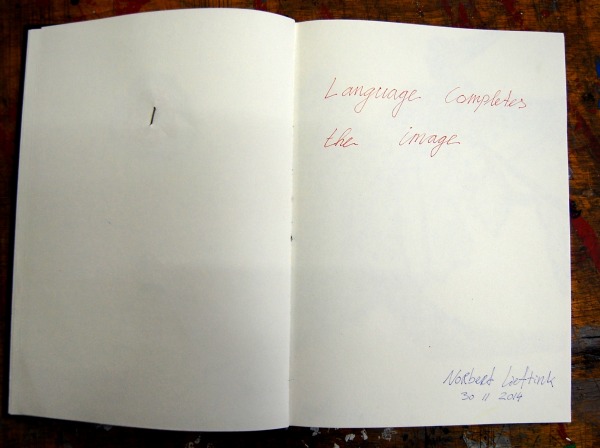 Language completes
the image
Norbert
30 11 2014